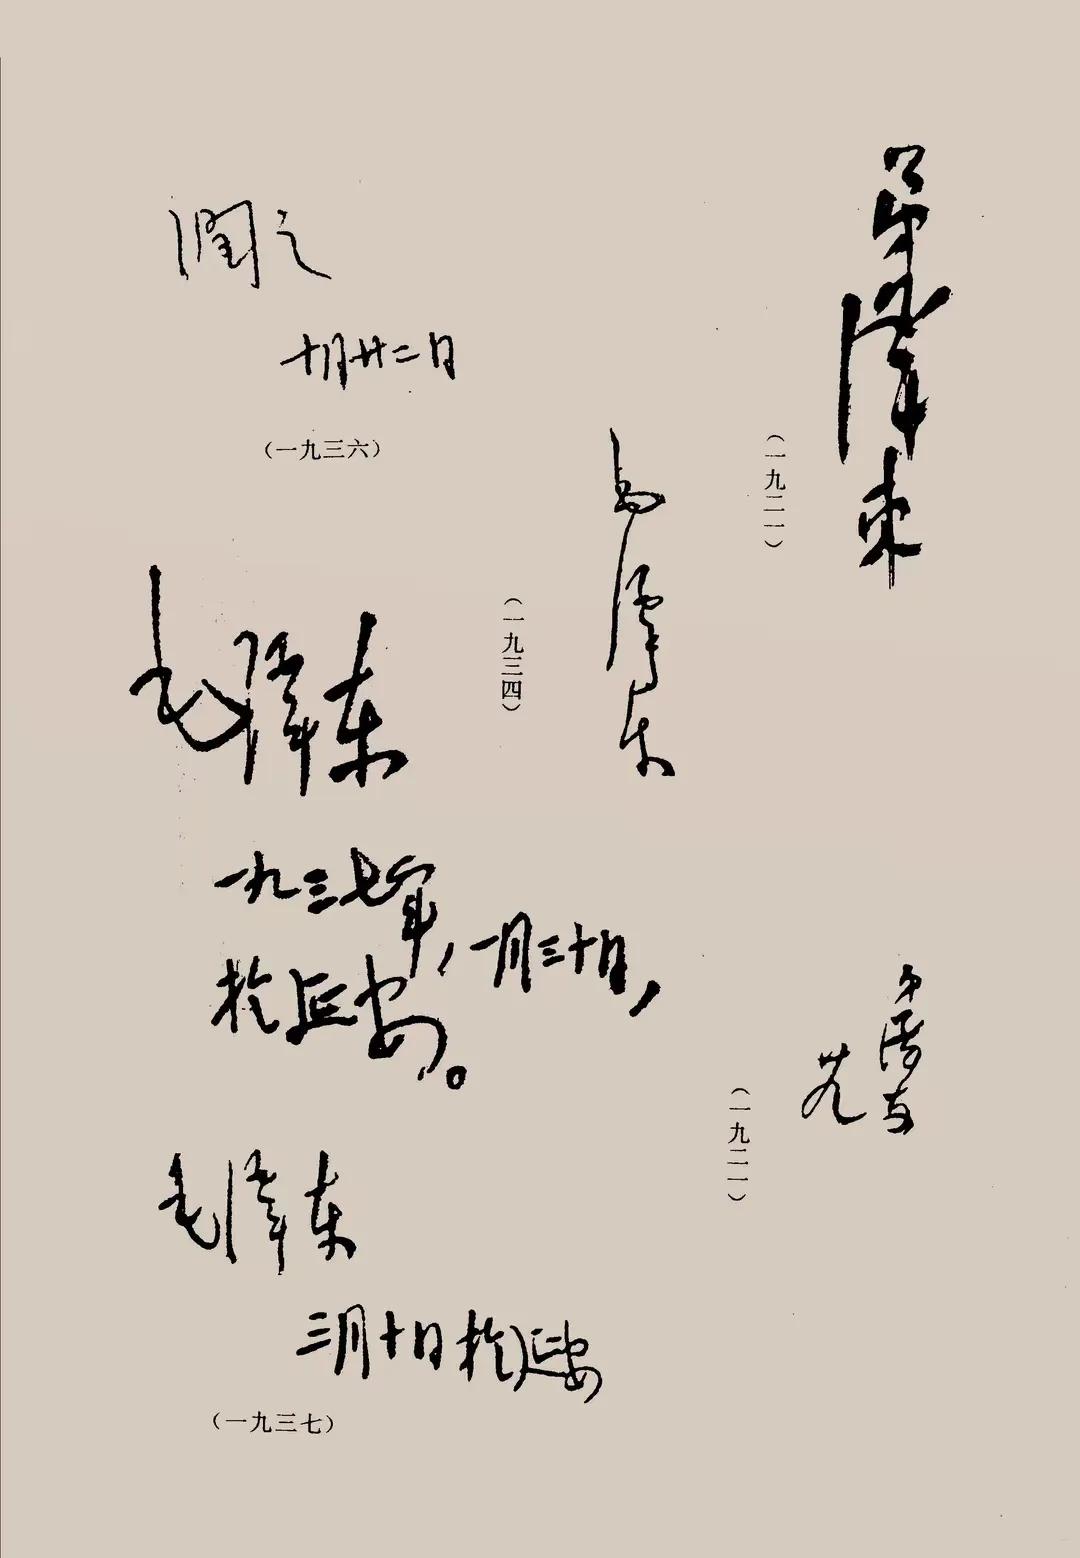 弟泽东
（一九二一）
弟泽东
廿九
（一九二一）
毛泽东
（一九三四）
润之
十月廿二日
（一九三六）
毛泽东
一九三七年，一月三十日，
于延安。
毛泽东
三月十日于延安
（一九三七）